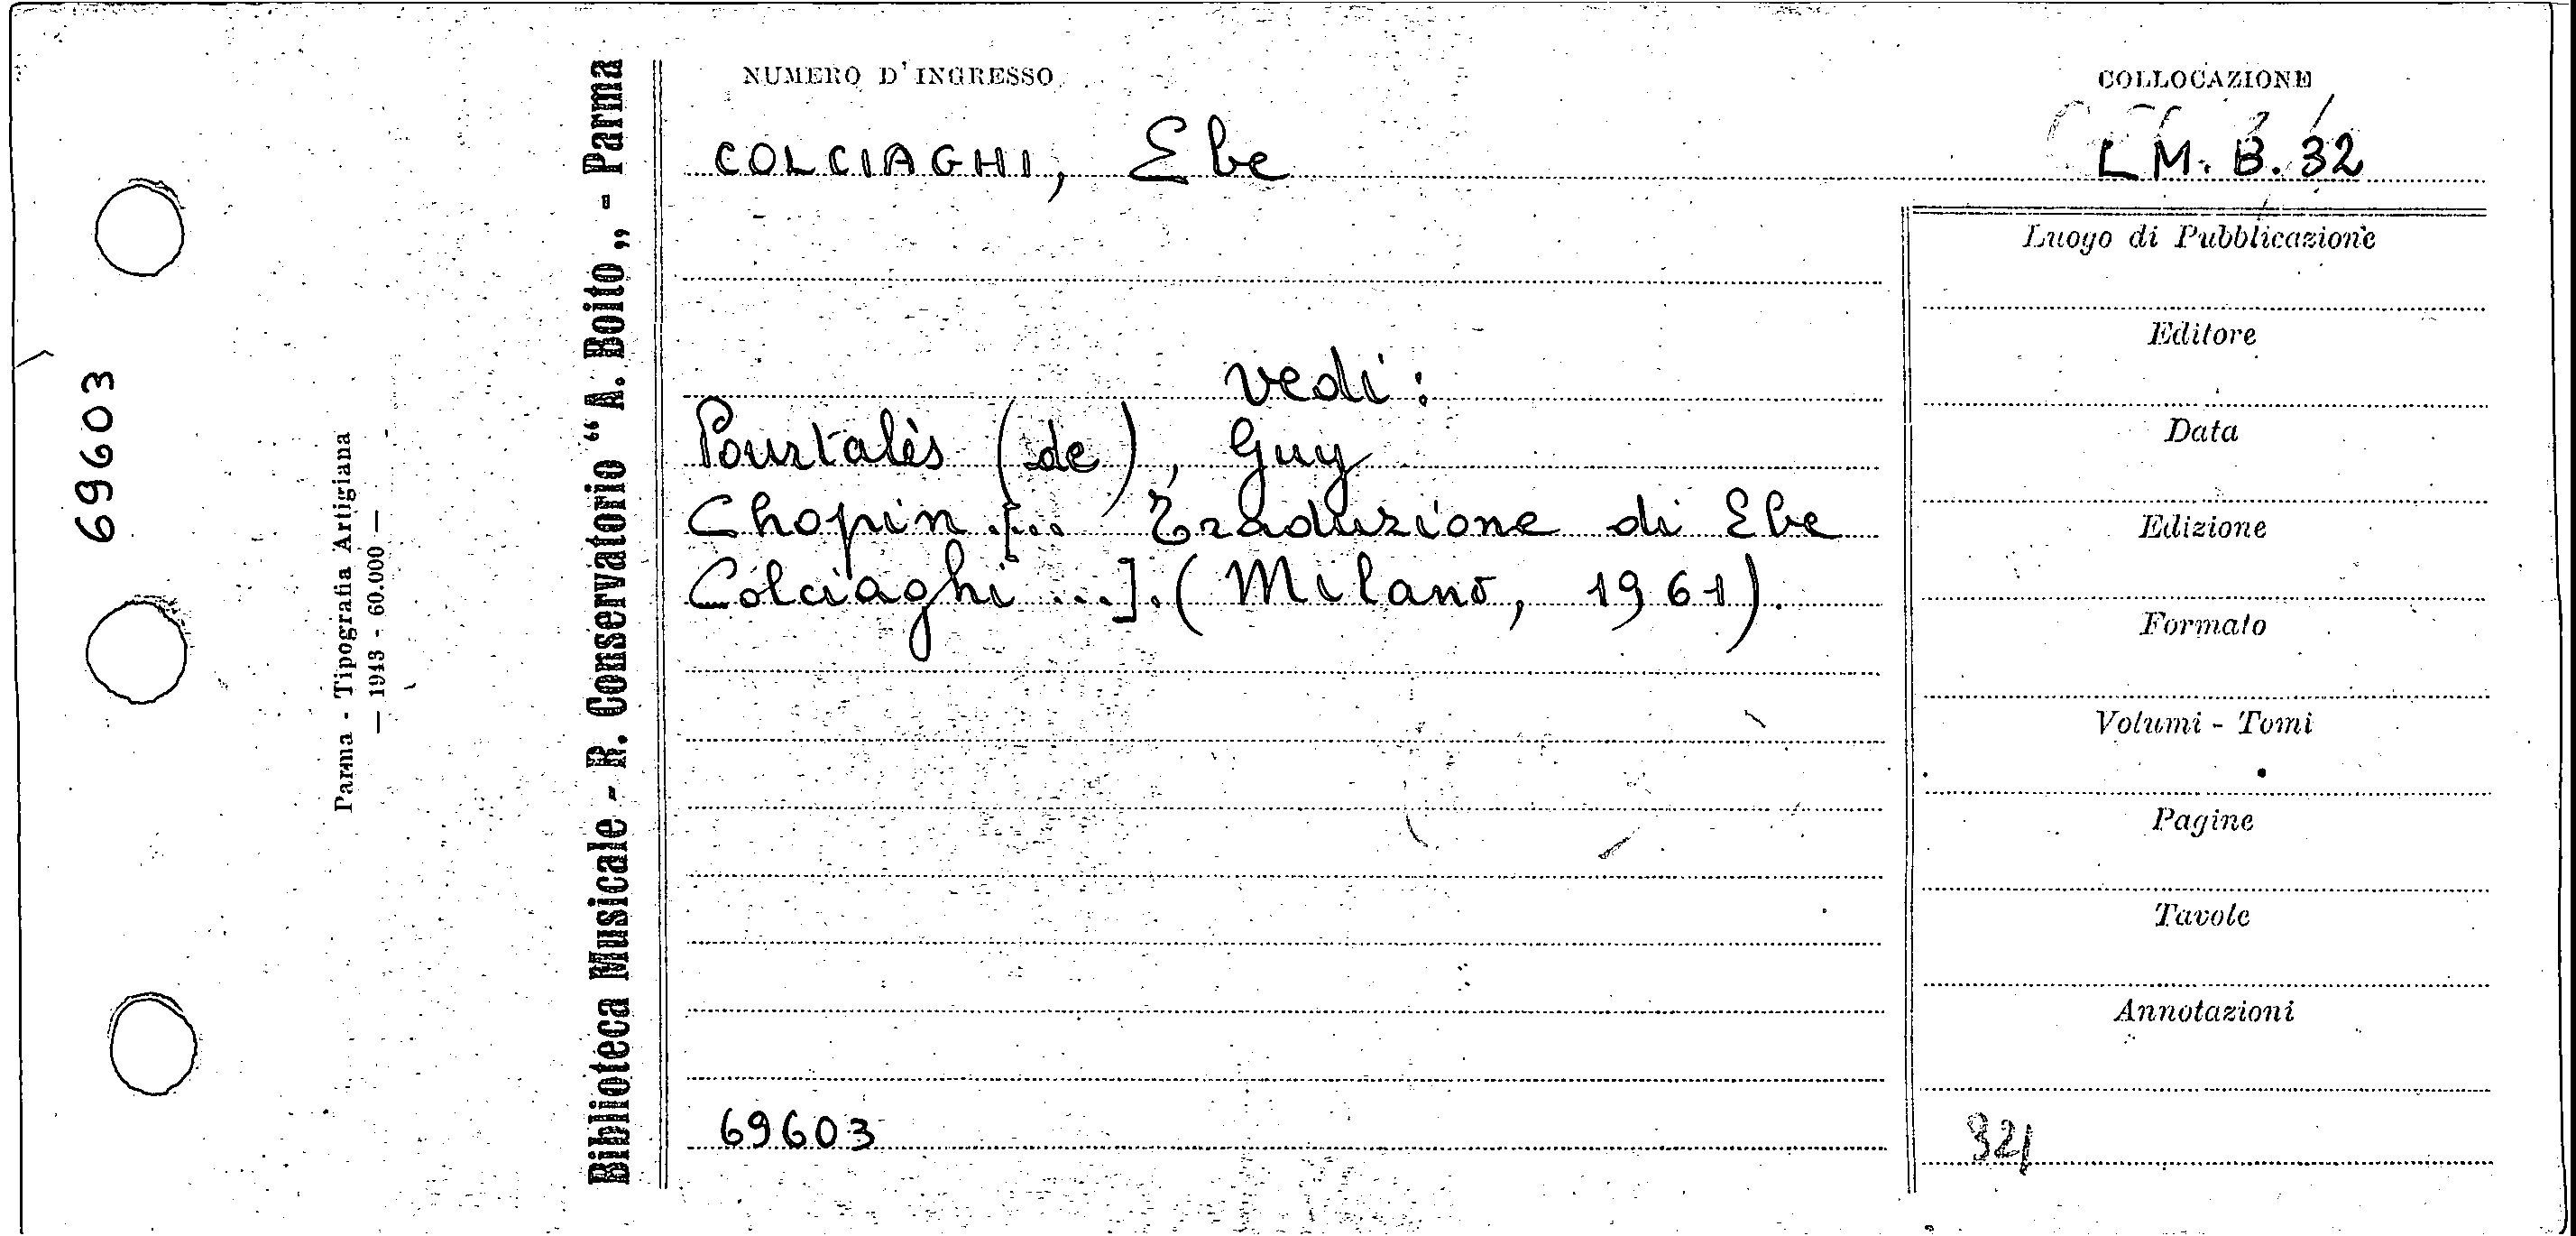 69603
Parma - Tipografia Artigiana
— 1943 - 60.000 —
Biblioteca Musicale - R. Conservatorio “A. Boito„ - Parma
NUMERO D'INGRESSO
COLLOCAZIONE
COLCIAGHI, Ebe
L M. B. 32
vedi:
Pourtalès (de), Guy
Chopin [... Traduzione di Ebe
Colciaghi ...]. (Milano, 1961).
69603
Luogo di Pubblicazione
Editore
Data
Edizione
Formato
Volumi - Tomi
Pagine
Tavole
Annotazioni